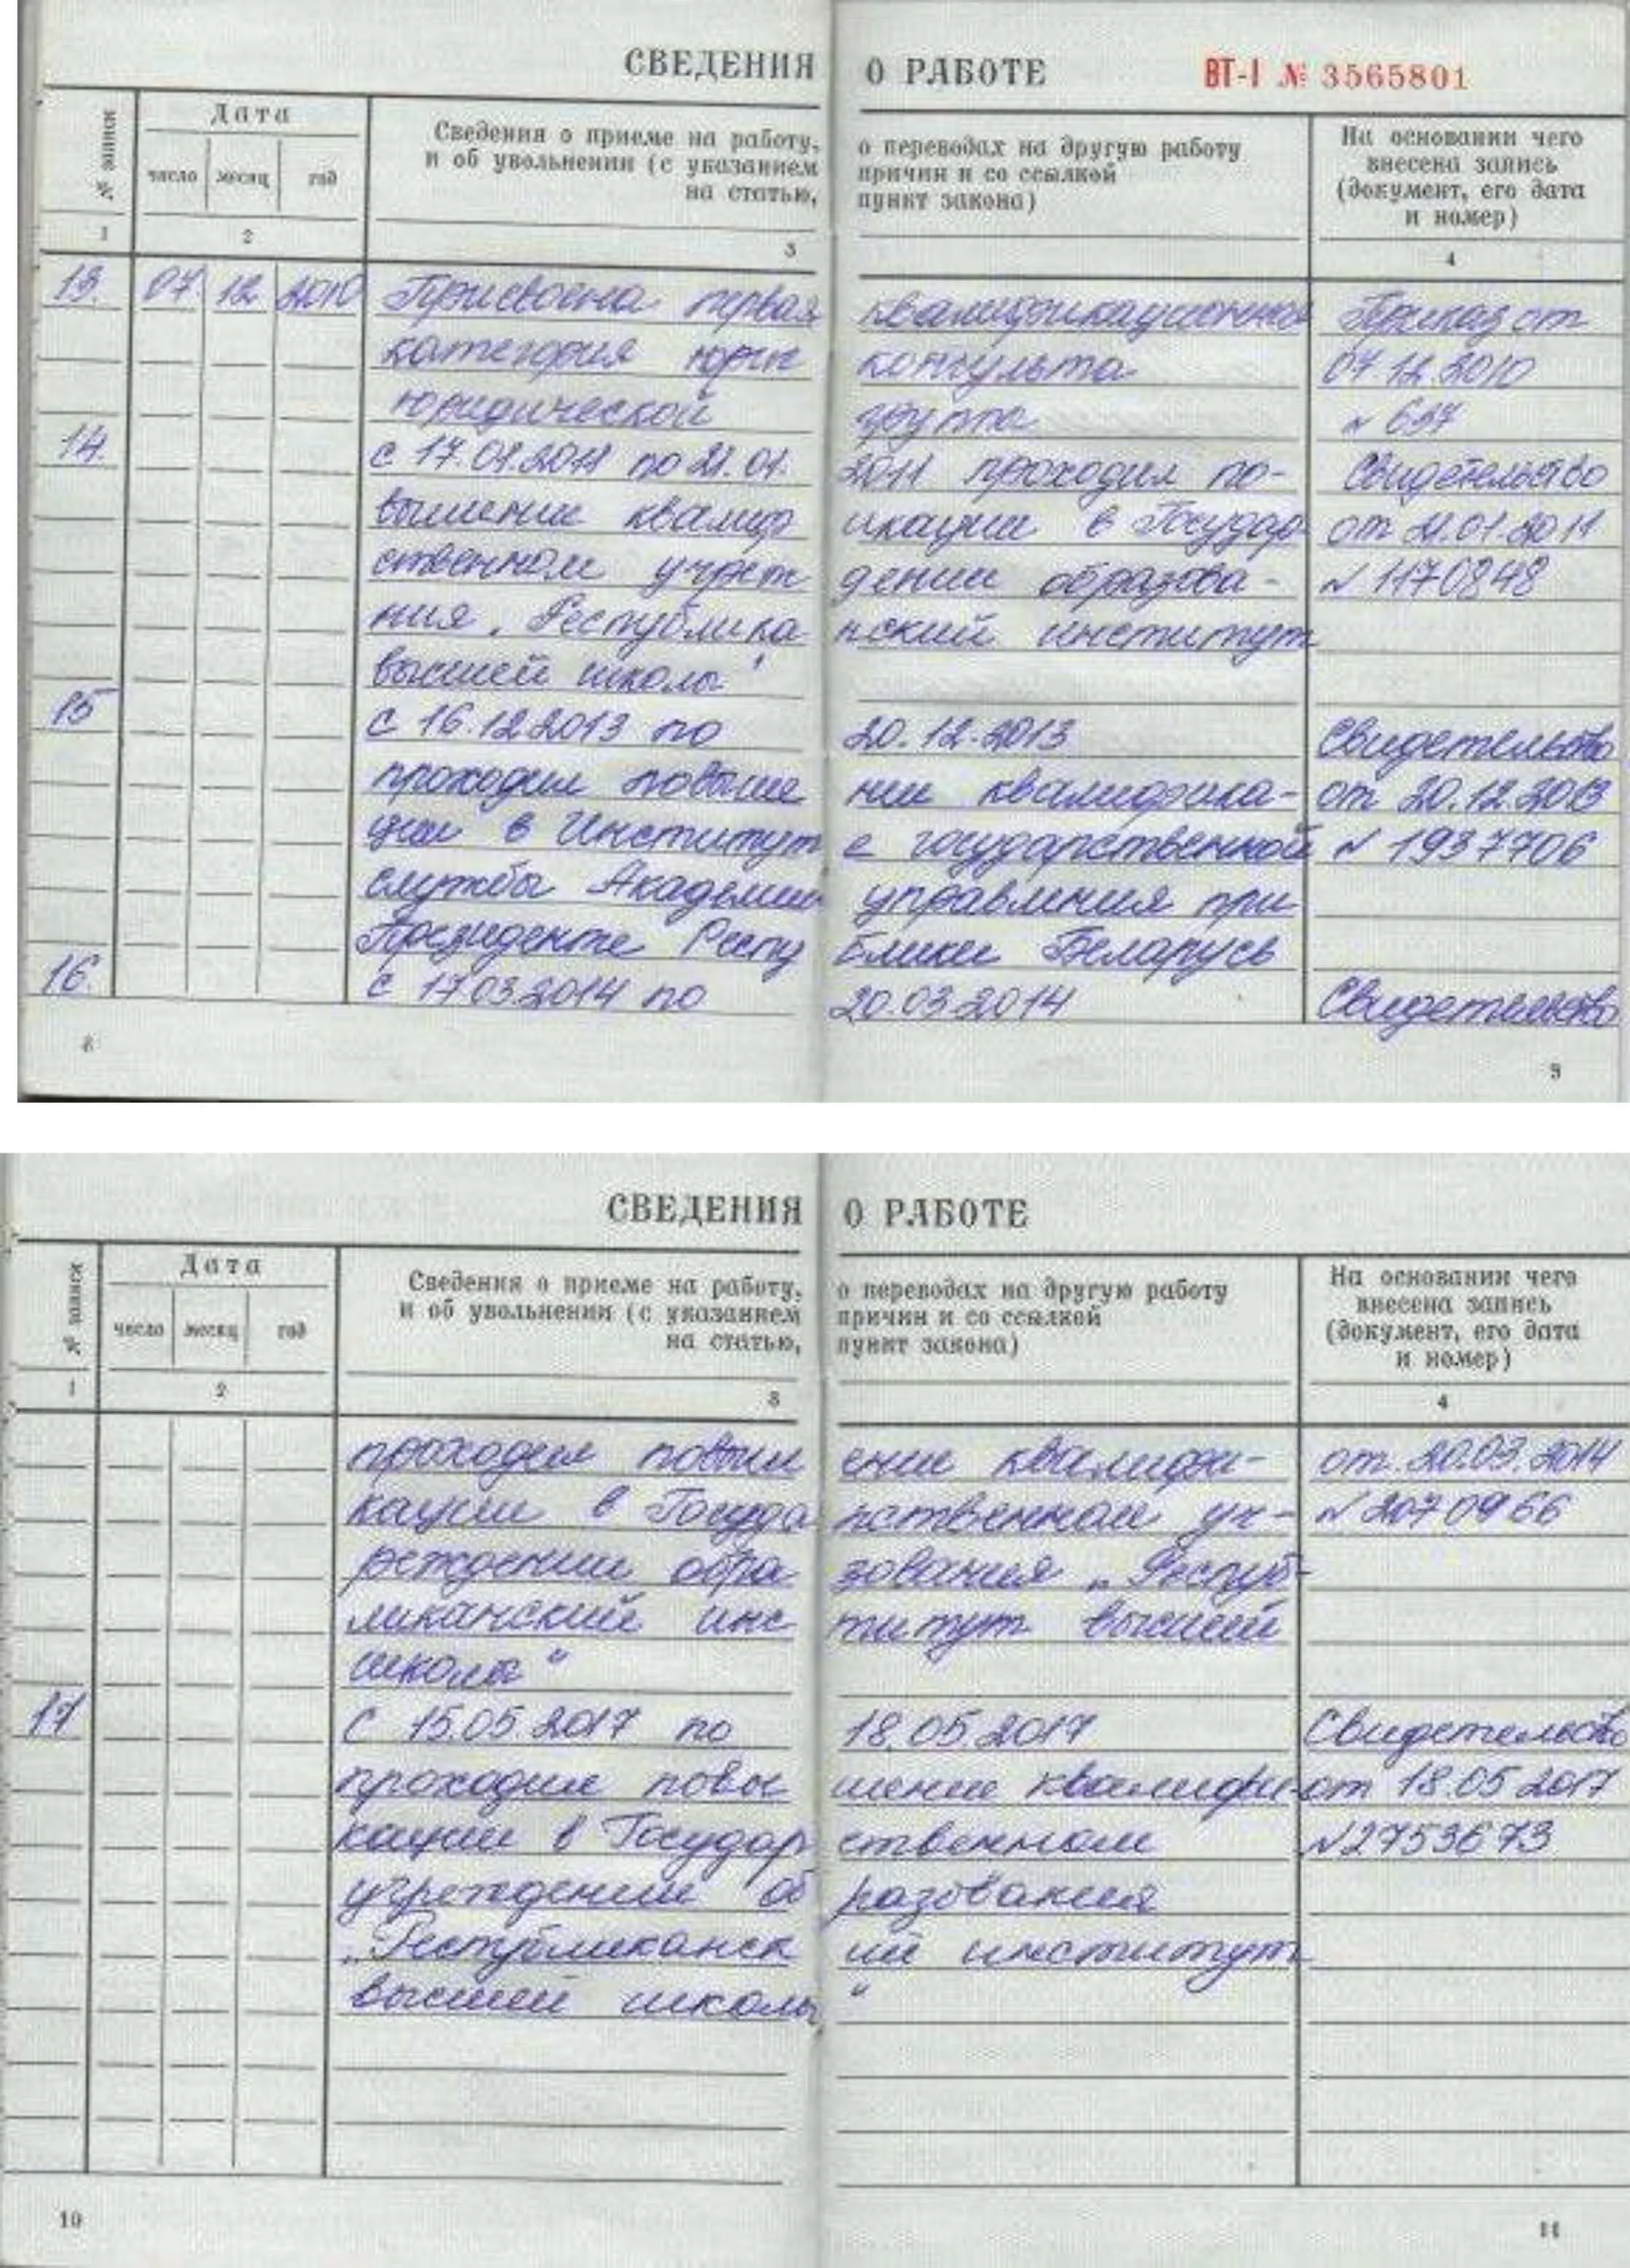 СВЕДЕНИЯ О РАБОТЕ ВТ-I № 3565801
№ записи
Дата
число месяц год
Сведения о приеме на работу, о переводах на другую работу
и об увольнении (с указанием причин и со ссылкой
на статью, пункт закона)
На основании чего
внесена запись
(документ, его дата
и номер)
1 2 3 4
13. 07. 12 2010 Присвоена первая квалификационная Приказ от
категория юрис консульта 07.12.2010
юридической группа № 637
14. с 17.01.2011 по 21.01. 2011 проходил по- Свидетельство
вышение квалиф икации в Государ от 21.01.2011
ственном учреж дении образова- № 1170848
ния „Республика нский институт
высшей школы"
15 с 16.12.2013 по 20.12.2013 Свидетельство
проходил повыше ние квалифика- от 20.12.2013
ции в Институт е государственной № 1937706
службы Академии управления при
Президенте Респу блики Беларусь
16. с 17.03.2014 по 20.03.2014 Свидетельство
8 9
СВЕДЕНИЯ О РАБОТЕ
№ записи
Дата
число месяц год
Сведения о приеме на работу, о переводах на другую работу
и об увольнении (с указанием причин и со ссылкой
на статью, пункт закона)
На основании чего
внесена запись
(документ, его дата
и номер)
1 2 3 4
проходил повыш ение квалифи- от 20.03.2014
кации в Госуда рственном уч- № 2070966
реждении обра- зования „Респуб-
ликанский инс- титут высшей
школы"
17 С 15.05.2017 по 18.05.2017 Свидетельство
проходил повы шение квалифи- от 18.05.2017
кации в Государ ственном № 2753673
учреждении об разования
„Республиканск ий институт
высшей школы "
10 11